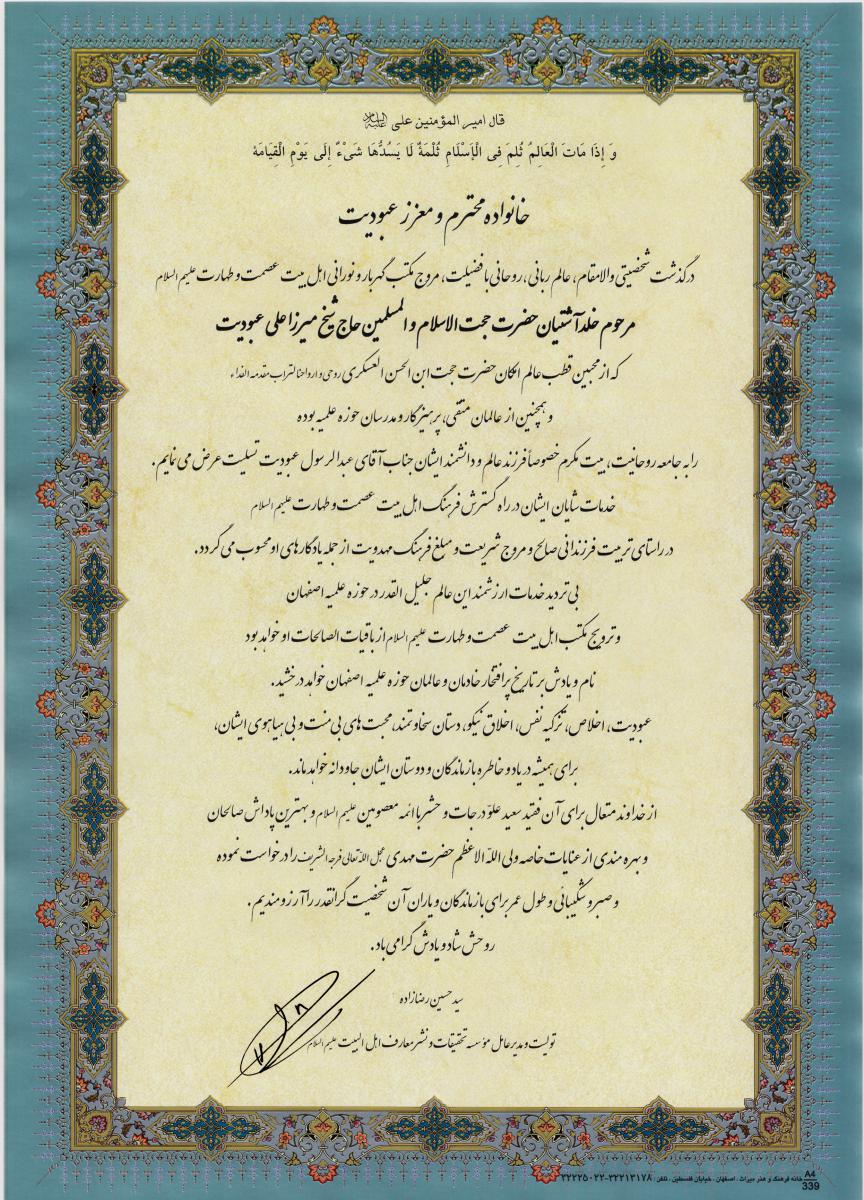 قال امیر المؤمنین علی علیه السلام
وَ إِذَا مَاتَ الْعَالِمُ ثُلِمَ فِی الْإِسْلَامِ ثُلْمَةٌ لَا يَسُدُّهَا شَیْءٌ إِلَی يَوْمِ الْقِيَامَة
خانواده محترم و معزز عبودیت
درگذشت شخصیتی والامقام، عالم ربانی، روحانی بافضیلت، مروج مکتب گهربار و نورانی اهل بیت عصمت و طهارت علیهم السلام
مرحوم خلدآشتیان حضرت حجت الاسلام و المسلمین حاج شیخ میرزا علی عبودیت
که از محبین قطب عالم امکان حضرت حجت ابن الحسن العسکری روحی و ارواحنا لتراب مقدمه الفداء
و همچنین از عالمان متقی، پرهیزگار و مدرسان حوزه علمیه بوده
را به جامعه روحانیت، بیت مکرم خصوصاً فرزند عالم و دانشمند ایشان جناب آقای عبدالرسول عبودیت تسلیت عرض می نمایم.
خدمات شایان ایشان در راه گسترش فرهنگ اهل بیت عصمت و طهارت علیهم السلام
در راستای تربیت فرزندانی صالح و مروج شریعت و مبلغ فرهنگ مهدویت از جمله یادگارهای او محسوب می گردد.
بی تردید خدمات ارزشمند این عالم جلیل القدر در حوزه علمیه اصفهان
و ترویج مکتب اهل بیت عصمت و طهارت علیهم السلام از باقیات الصالحات او خواهد بود
نام و یادش بر تاریخ پرافتخار خادمان و عالمان حوزه علمیه اصفهان خواهد درخشید.
عبودیت، اخلاص، تزکیه نفس، اخلاق نیکو، دستان سخاوتمند، محبت های بی منت و بی هیاهوی ایشان،
برای همیشه در یاد و خاطره بازماندگان و دوستان ایشان جاودانه خواهد ماند.
از خداوند متعال برای آن فقید سعید علوّ درجات و حشر با ائمه معصومین علیهم السلام و بهترین پاداش صالحان
و بهره مندی از عنایات خاصه ولی الله الاعظم حضرت مهدی عجل الله تعالی فرجه الشریف را درخواست نموده
و صبر و شکیبائی و طول عمر برای بازماندگان و یاران آن شخصیت گرانقدر را آرزومندیم.
روحش شاد و یادش گرامی باد.
سید حسین رضازاده
تولیت و مدیرعامل مؤسسه تحقیقات و نشر معارف اهل البیت علیهم السلام
خانه فرهنگ و هنر میراث، اصفهان، خیابان فلسطین، تلفن: ۳۲۲۱۳۱۷۸-۳۲۲۲۵۰۲۲
A4
339